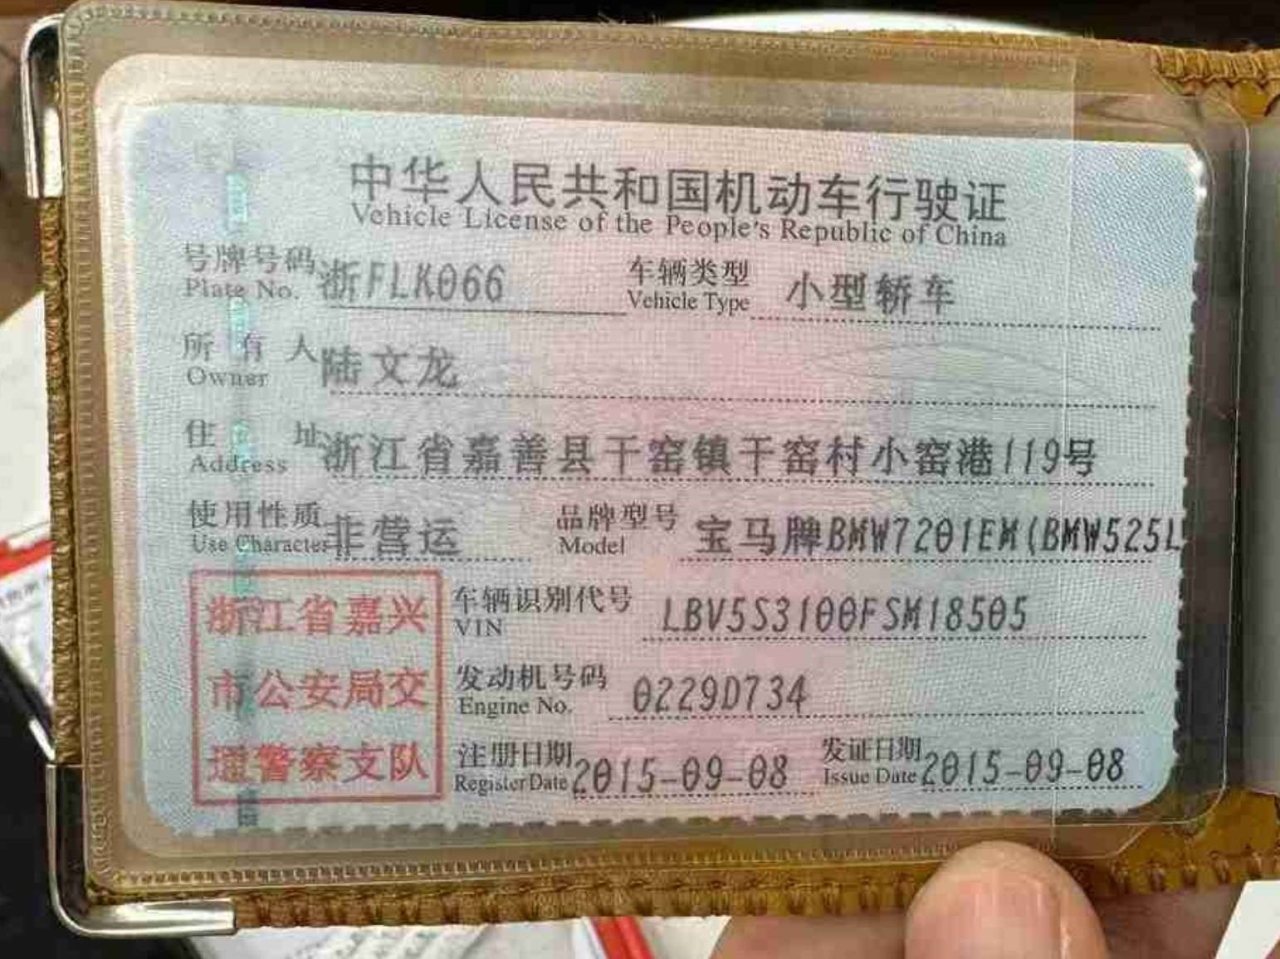 中华人民共和国机动车行驶证
Vehicle License of the People's Republic of China
号牌号码 浙FLK066 车辆类型 小型轿车
Plate No. Vehicle Type
所有人 陆文龙
Owner
住址 浙江省嘉善县干窑镇干窑村小窑港119号
Address
使用性质 非营运 品牌型号 宝马牌BMW7201EM(BMW525L
Use Character Model
浙江省嘉兴
市公安局交
通警察支队
车辆识别代号 LBV5S3100FSM18505
VIN
发动机号码 0229D734
Engine No.
注册日期 2015-09-08 发证日期 2015-09-08
Register Date Issue Date